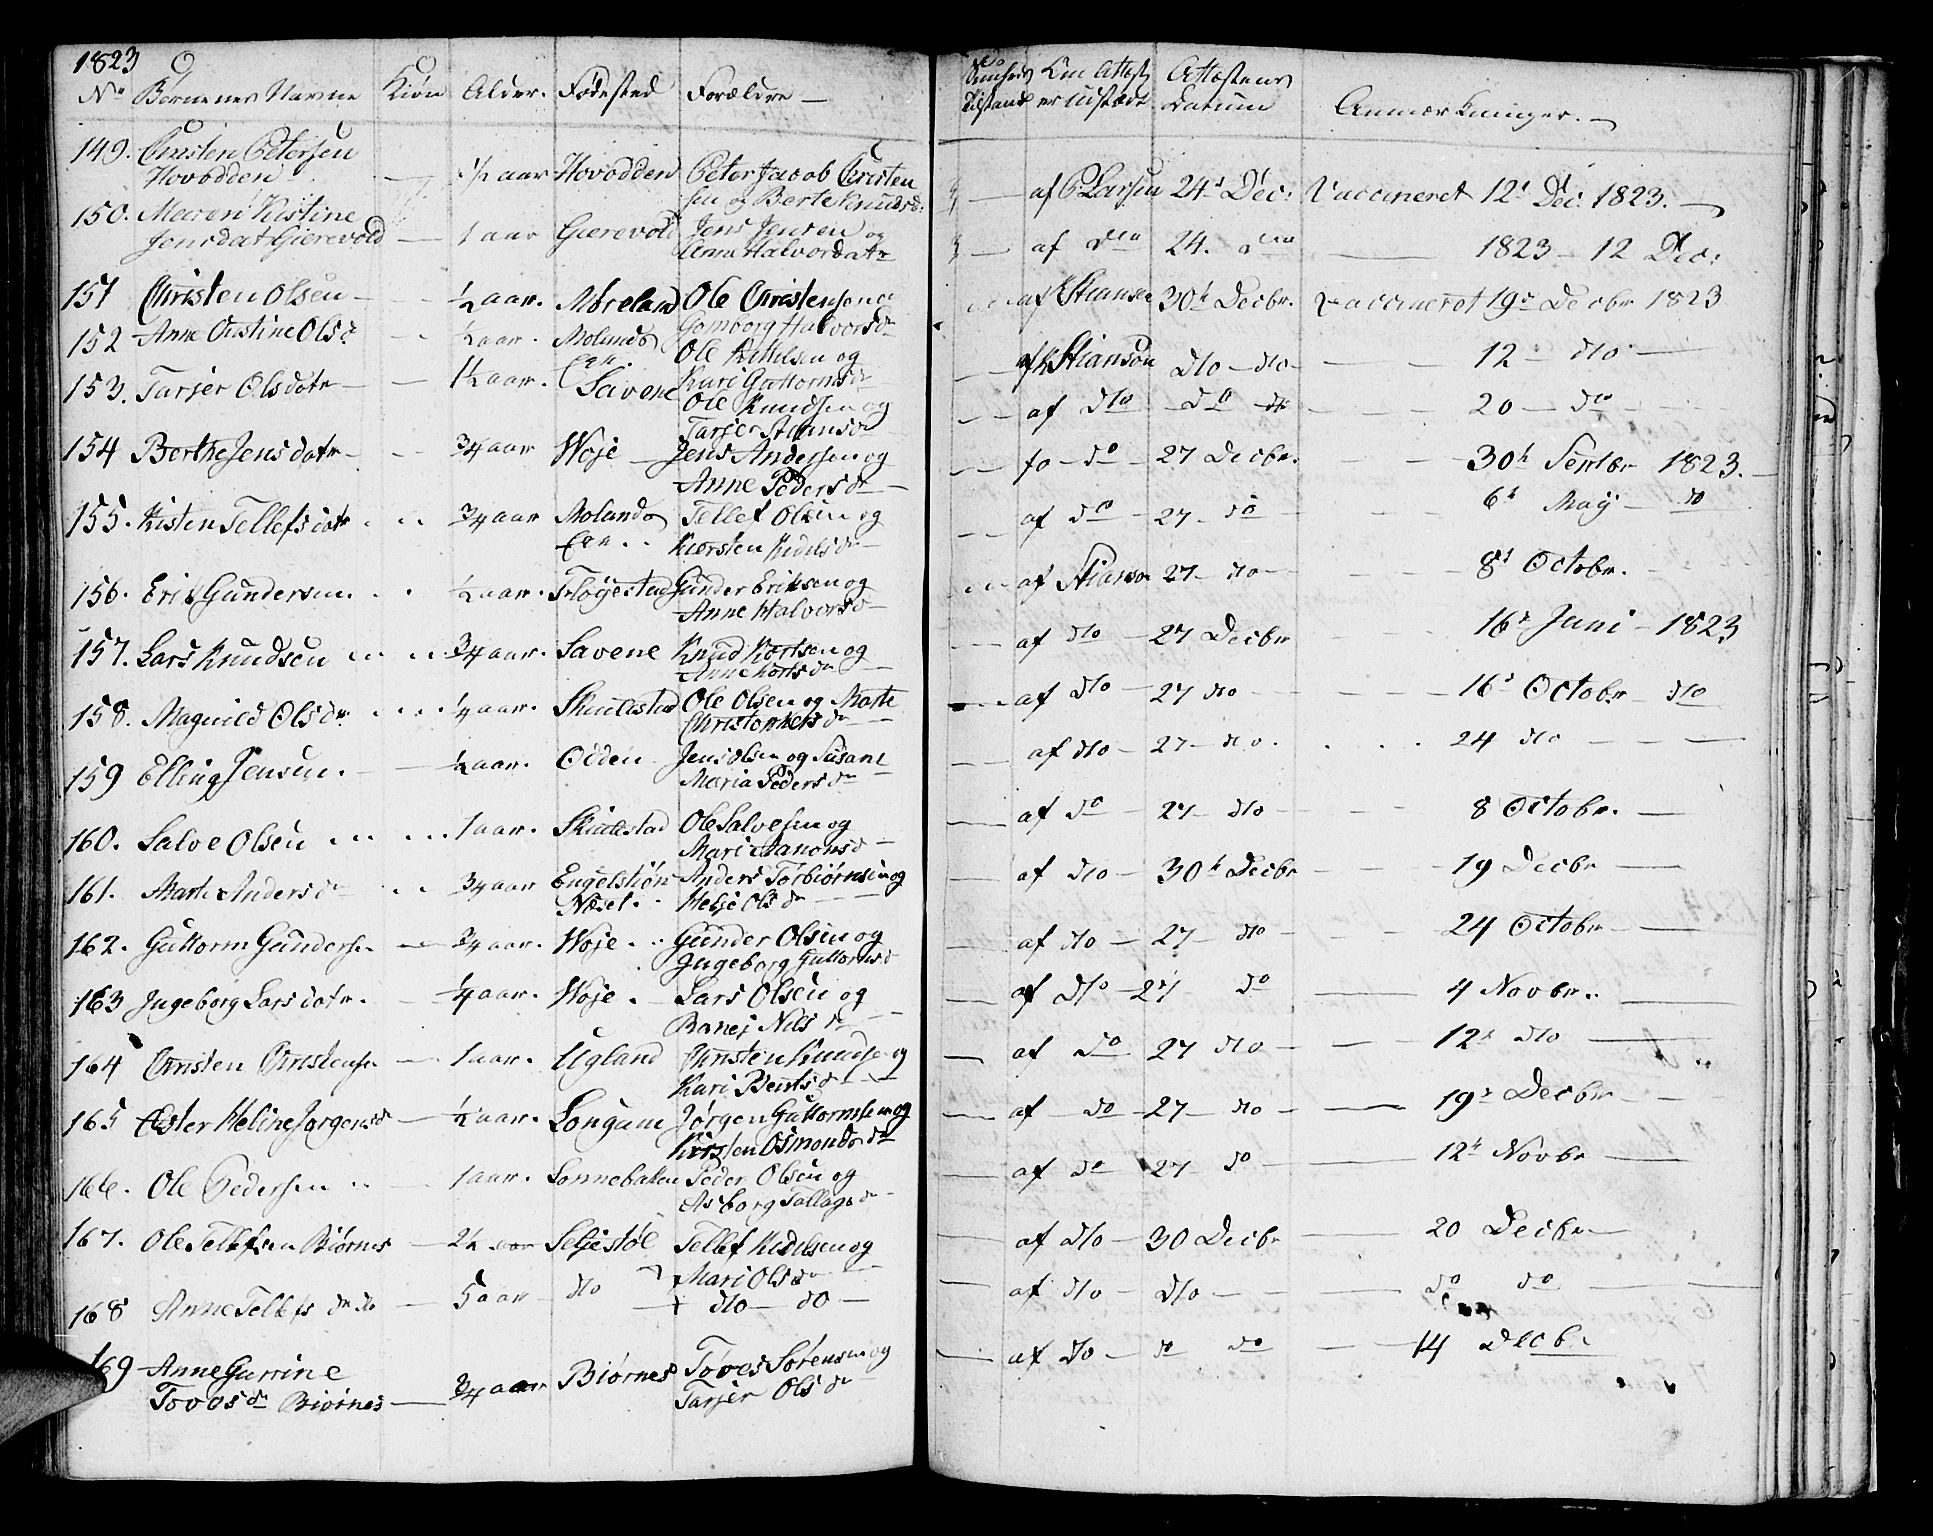 1823
No Børnenes Navne Kiøn Alder. Fødested Forældre — Om Attest Attestens
er udstædt Datum Anmærkninger. —
149. Christen Petersen ½ aar Hovodden Peter Jacob Christen
Hovodden — sen og Berte Knudsd: — af P Larsen 24d Dec: Vaccineret 12t Dec. 1823. —
150. Maren Kistine
Jensdat Gierevold — 1 aar Gierevold Jens Jensen og
Anne Halvorsdatr — af dto 24. dto — 1823 — 12 Dec:
151 Christen Olsen — ½ aar. Moreland Ole Christensen og
Gomborg Halvorsdr af K Stiansen 30t Decbr. Vaccineret 19d Decbr 1823
152 Anne Cistine Olsdr ½ aar. Molands Ole Kittelsen og
Kari Guttormsdr af K Stianson dto — dto — 12 — dto —
153. Tarjer Olsdatr — 1½ aar. Savene Ole Knudsen og
Tarjer Stiansdr — af dto — do — 20 — dto
154 Berthe Jensdatr — ¾ aar Woje — Jens Andersen og
Anne Pedersdr — do — 27 Decbr. — 30t Septbr 1823. —
155. Kisten Tellefsdatr ¾ aar Molands Tellef Olsen og
Kiersten Kidelsdr — af do — 27 — do — 6t May — do
156. Erik Gundersen. ½ aar. Fløyestad Gunder Eriksen og
Anne Halvorsdr — af Stianson 27 — dto — 8d Octobr.
157. Lars Knudsen ¾ aar. Savene Knud Kortsen og
Anne Kortsdr — af dto — 27 Decbr 16d Juni — 1823
158. Magnild Olsdr. ¼ aar. Skulestad Ole Olsen og Marte
Christophersdr — af dto — 27 dto — 16d Octobr dto
159 Elling Jensen. — ½ aar. Odden Jens Olsen og Susane
Maria Pedersdr — af dto — 27 — dto. 24 dto —
160. Salve Olsen 1 aar. Skulestad Ole Salvesen og
Mari Aanonsd — af do — 27 — dto — 8 Octobr. —
161. Marte Andersdr ¾ aar Engelstiøn Anders Torbiørnsen og
Næset. Helje Olsdr — af dto — 30t Decbr — 19 Decbr —
162. Guttorm Gundersen — ¾ aar. Woje. Gunder Olsen og
Ingeborg Guttormsd — af dto — 27 — dto — 24 Octobr —
163 Ingeborg Larsdatr. — ¼ aar. Woje. Lars Olsen og
Nilsdr — af dto — 27 do — 4 Novbr. —
164 Christen Christensen — 1 aar. Ugland Christen Knudsen og
Kari Bentsdr — af do 27 dto — 12t dto —
165 Ester Heline Jørgensd — ½ aar. Longum Jørgen Guttormsen og
Kirsten Osmondsdr — af — do — 27 — dto — 19d Decbr —
166. Ole Pedersen — 1 aar. Sonnebaken Peder Olsen og
Asborg Tallagsdr — af do — 27 — do — 12t Novbr —
167. Ole Tellefsen Biørnes — 2½ aar Seljestøl Tellef Kidelsen og
Mari Olsdr — af dto — 30 Decbr — 20 Decbr —
168 Anne Tellefsdr do — 5 aar — dto — dto — do — — af dto — dto — do do —
169 Anne Gurrine
Tovesdr Biørnes — ¾ aar Biørnes Toves Sørensen og
Tarjer Olsdr — af dto — do do — 14 Decbr